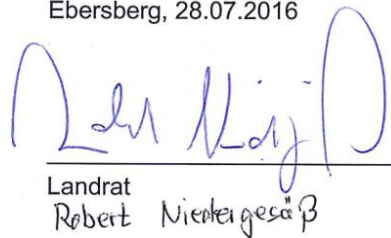 Ebersberg, 28.07.2016
Landrat
Robert Niedergesäß